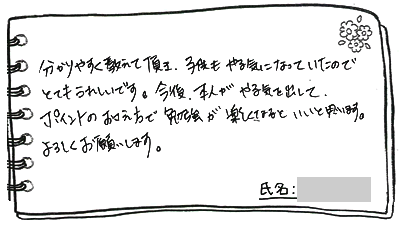 分かりやすく教えて頂き、子供もやる気になっていたので
とてもうれしいです。今後、本人がやる気を出して、
ポイントのおさえ方で勉強が楽しくなるといいと思います。
よろしくお願いします。
氏名: